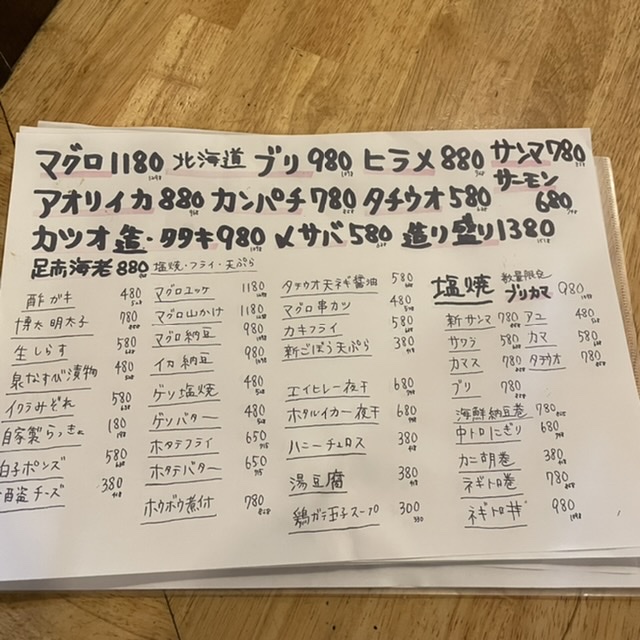 マグロ1180 北海道 ブリ 980 ヒラメ 880 サンマ780
アオリイカ 880 カンパチ 780 タチウオ 580 サーモン 680
カツオ 造・タタキ 980 〆サバ 580 造り盛り1380
足赤海老 880 塩焼・フライ・天ぷら
酢ガキ 480
博太明太子 780
生しらす 580
泉なすび漬物 480
イクラみぞれ 580
自家製らっきょ 180
白子ポンズ 580
酒盗チーズ 380
マグロユッケ 1180
マグロ山かけ 1180
マグロ納豆 980
イカ納豆 980
ゲソ塩焼 480
ゲソバター 480
ホタテフライ 650
ホタテバター 650
ホウボウ煮付 780
タチウオ天ネギ醤油 580
マグロ串カツ 480
カキフライ 580
新ごぼう天ぷら 380
エイヒレ一夜干 680
ホタルイカ一夜干 680
ハニーチュロス 380
湯豆腐 380
鶏ガラ玉子スープ 300
塩焼 数量限定 ブリカマ 980
新サンマ 780 アユ 480
サワラ 580 カマ 580
カマス 780 タチウオ 780
ブリ 780
海鮮納豆巻 780
中トロにぎり 680
カニ胡巻 380
ネギトロ巻 780
ネギトロ丼 980